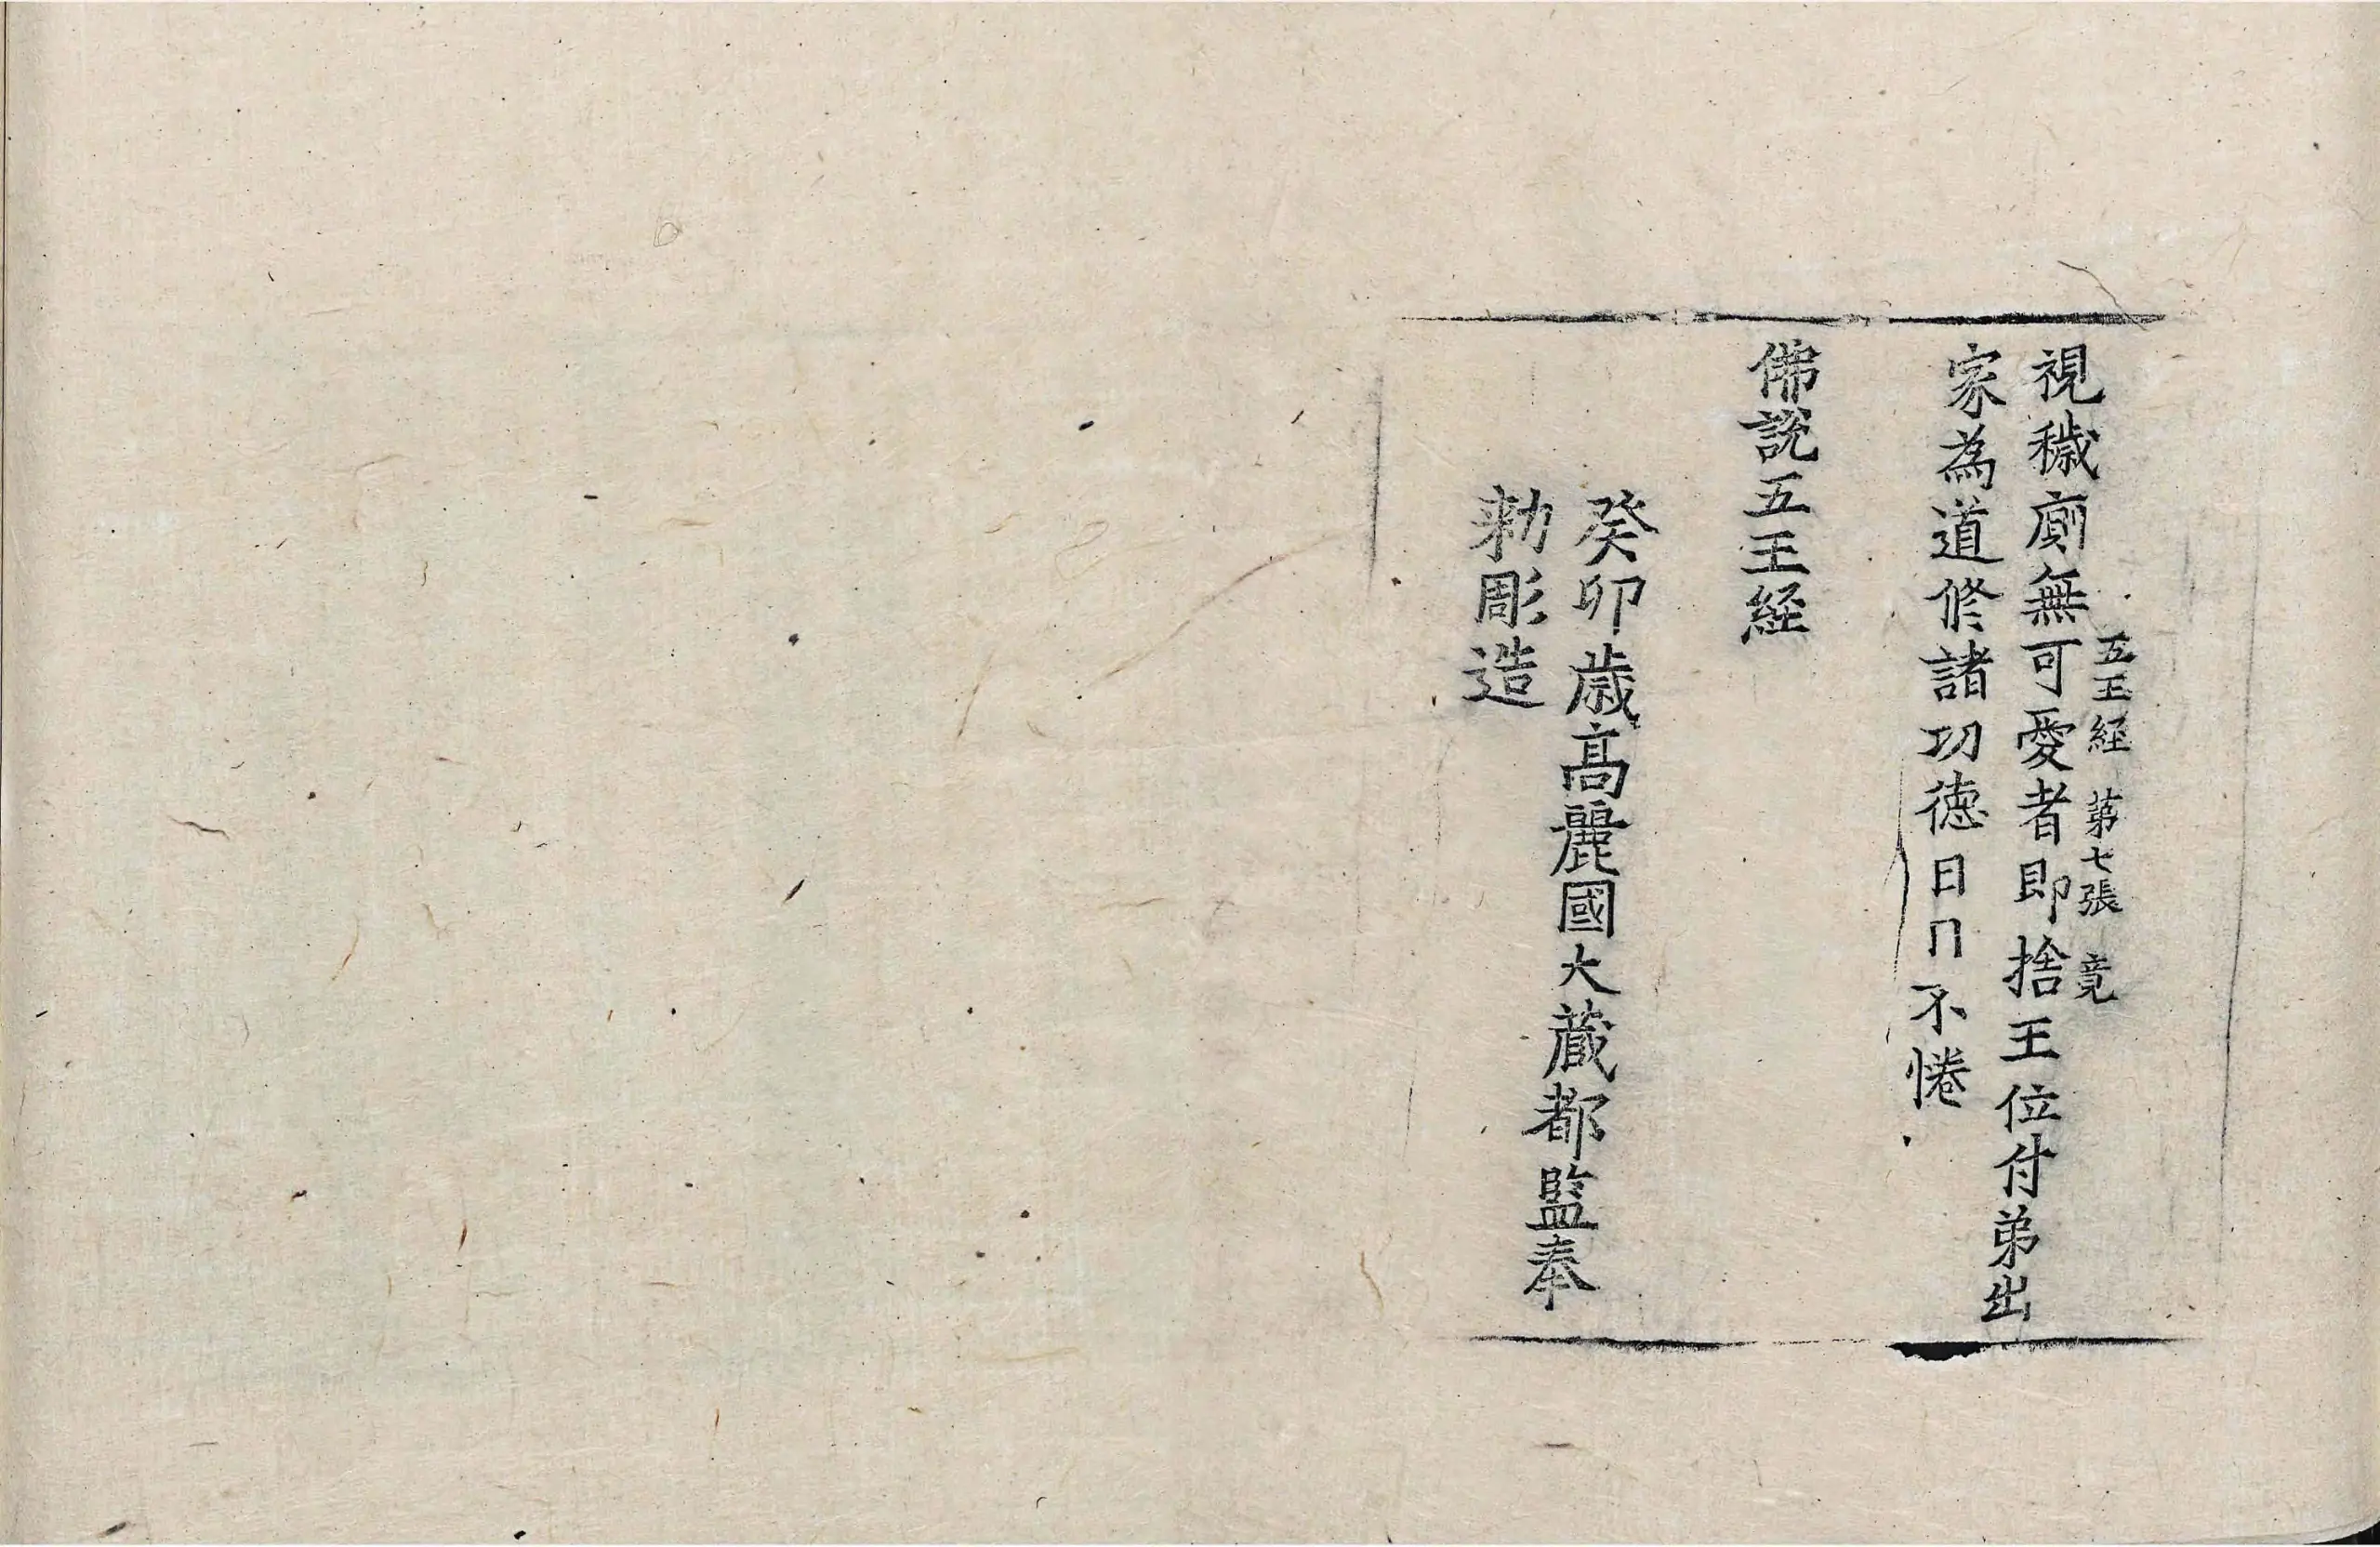 五王経 第七張 竟
視穢廁無可愛者即捨王位付弟出
家為道修諸功德日日不惓
佛說五王経
癸卯歲高麗國大藏都監奉
勑彫造